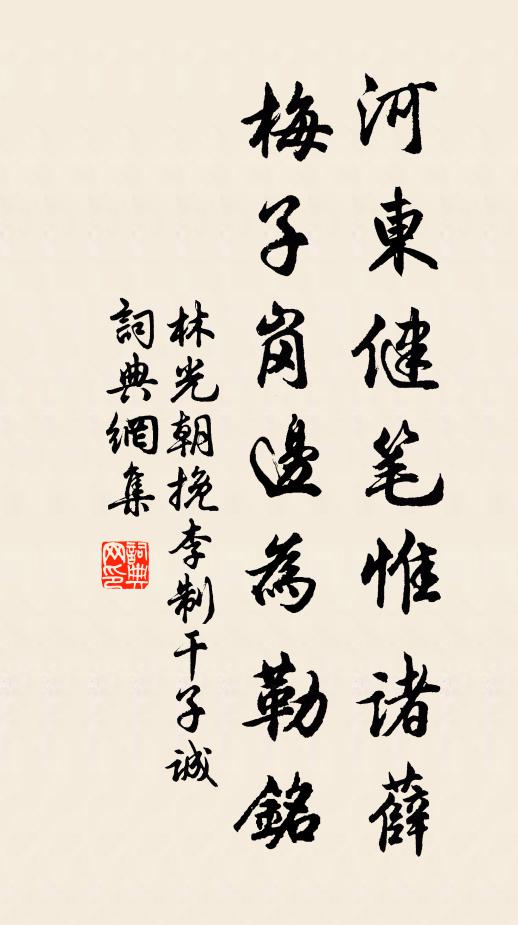 河東健笔惟諸薛
梅子岗邊為勒銘
林光朝挽李制干子誠
詞典網集
詞典网印